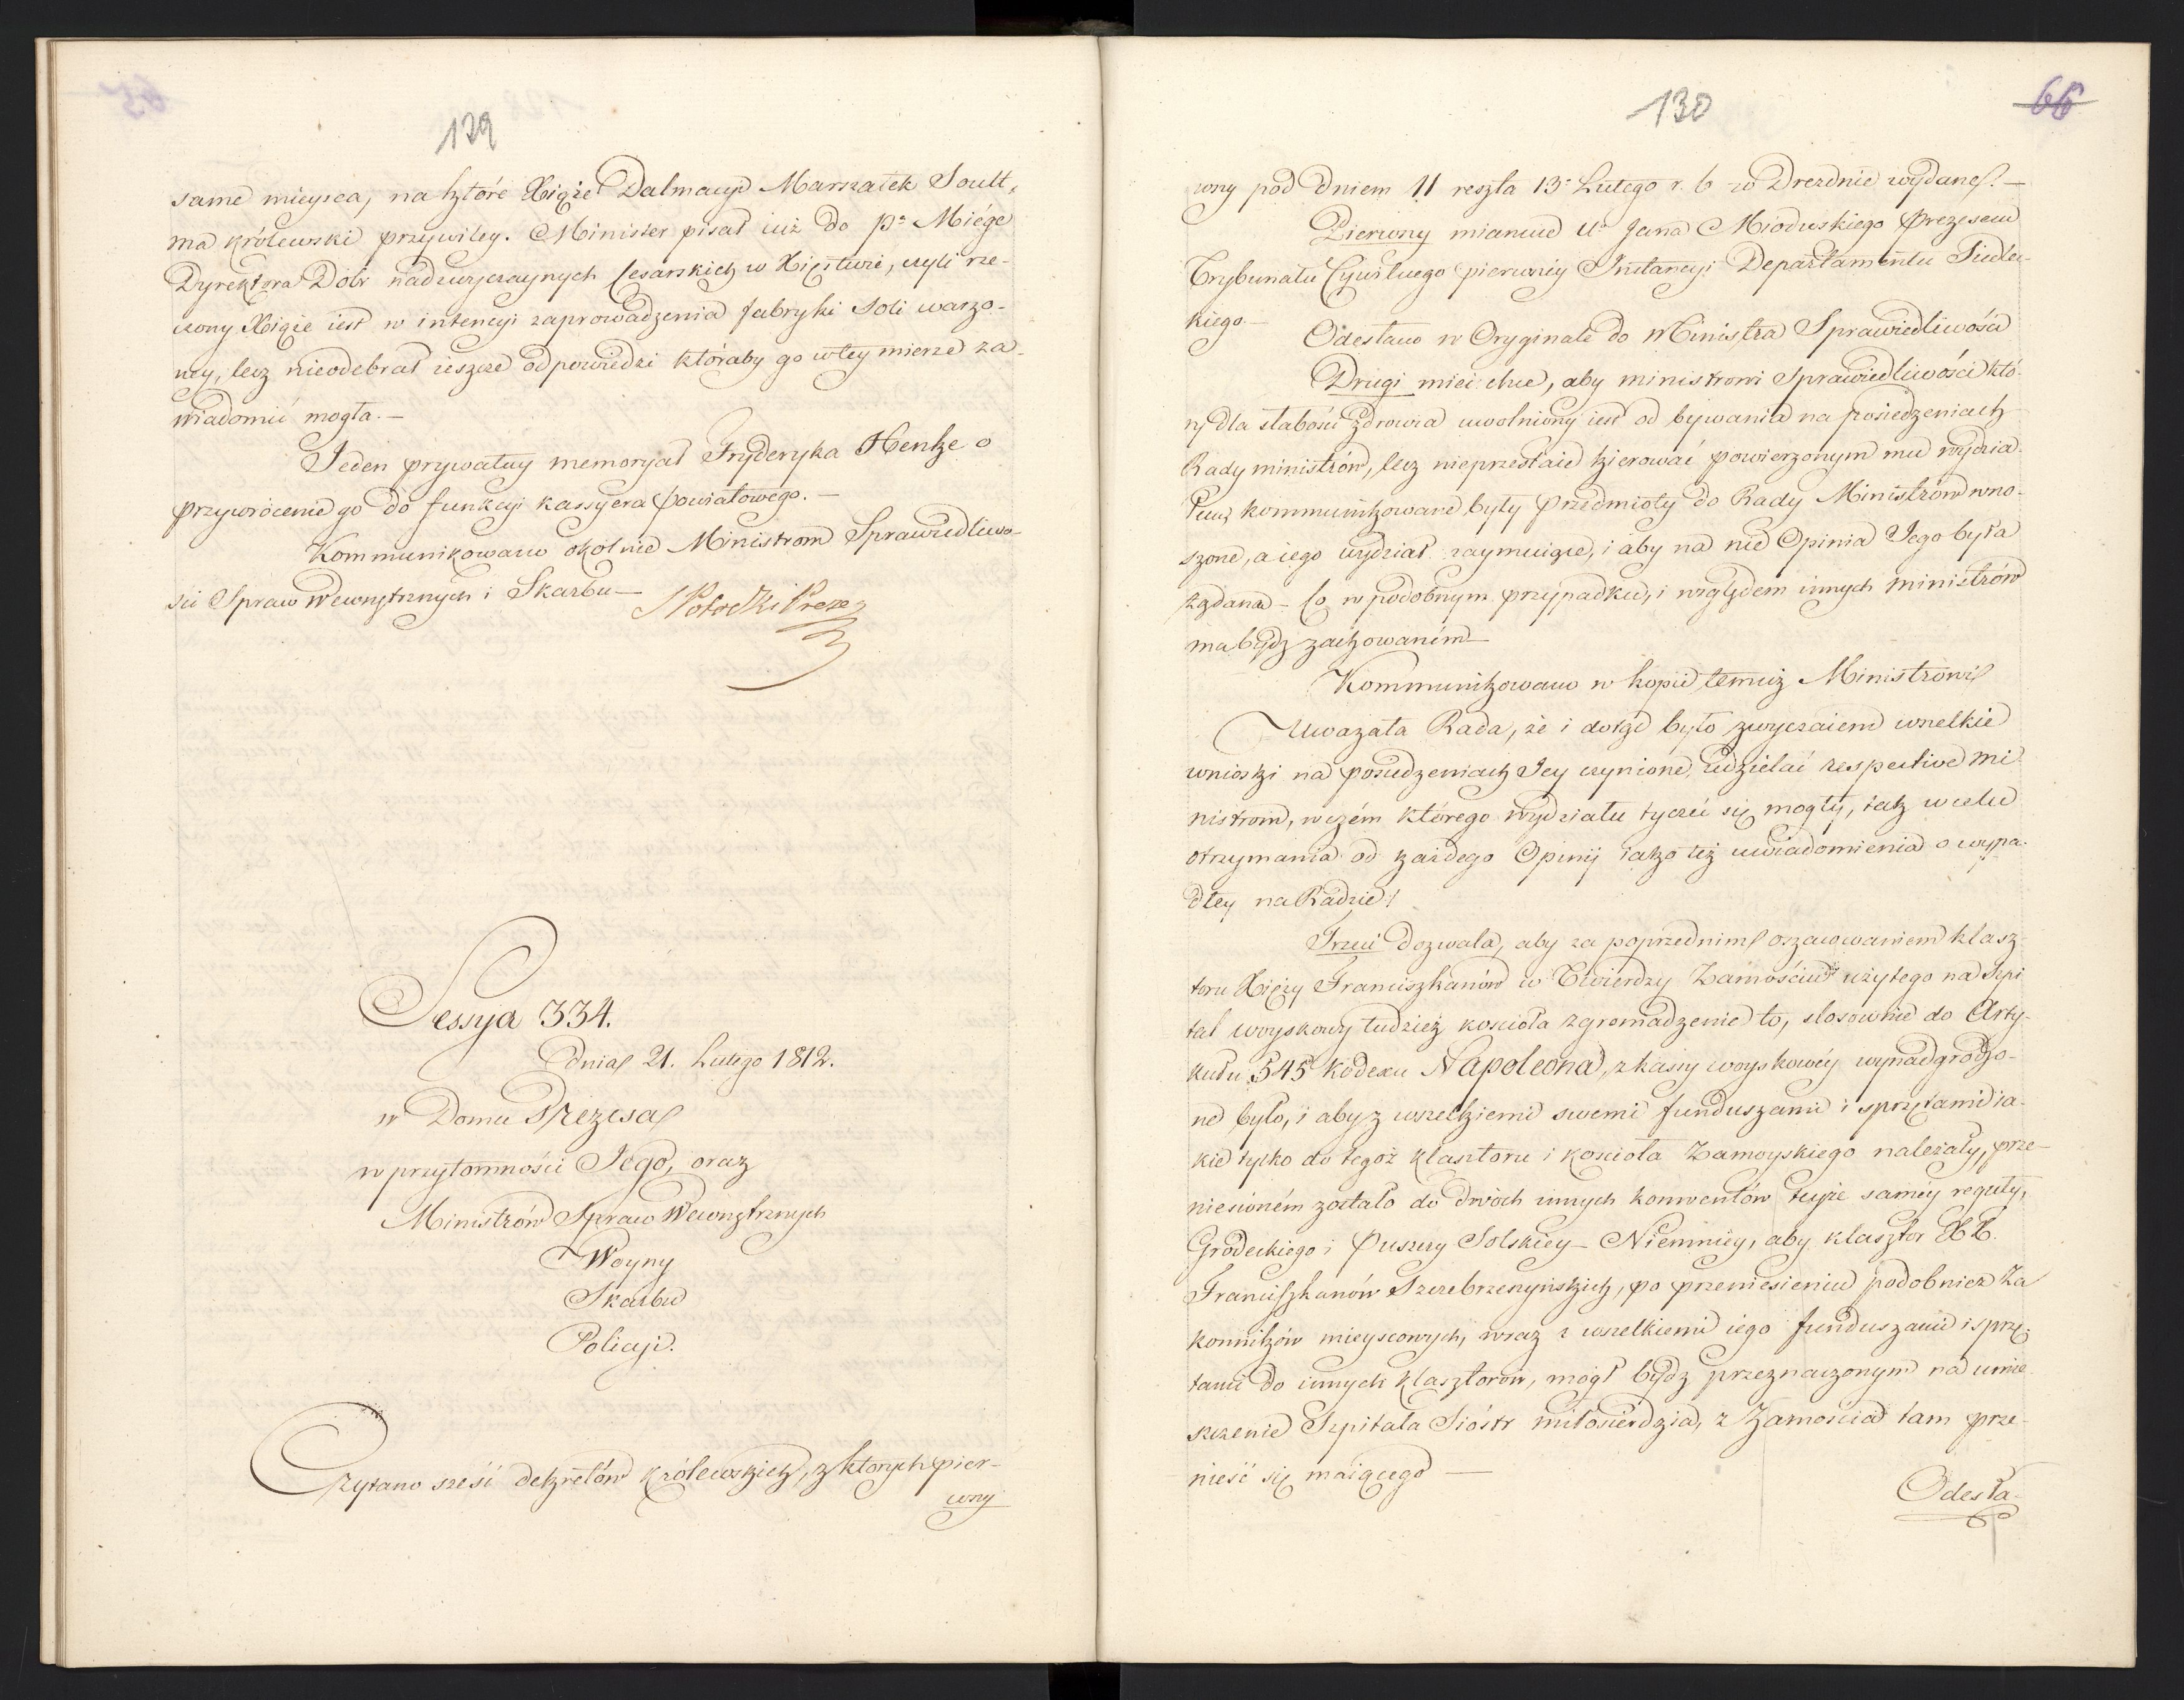 129
same mieysca, na które Xiąże Dalmacyi Marszałek Soult,
ma królewski przywiley. Minister pisał iuż do Pa Miége
Dyrektora Dóbr nadzwyczaynych Cesarskich w Xięstwie, czyli rze-
czony Xiąże iest w intencyi zaprowadzenia fabryki soli warzo-
ney, lecz nieodebrał ieszcze odpowiedzi któraby go w tey mierze za-
wiadomić mogła.—
Jeden prywatny memoryał Fryderyka Henke o
przywrócenie go do funkcyi kassyera powiatowego.—
Kommunikowano okólnie Ministrom Sprawiedliwo-
ści Spraw Wewnętrznych i Skarbu—
SPotocki Prezes
Sessya 334.
dnia 21. Lutego 1812.
w Domu Prezesa
w przytomności Jego, oraz
Ministrów Spraw Wewnętrznych
Woyny
Skarbu
Policyi.
Czytano sześć dekretów królewskich, z ktorych pier-
wny
130
66
wny pod dniem 11 reszta 13o Lutego r. b w Dreznie wydane.—
Pierwny mianuie Ur Jana Mioduskiego Prezesem
Trybunału Cywilnego pierwszéy Instancyi Departamentu Siedlec-
kiego—
Odesłano w Oryginale do Ministra Sprawiedliwości
Drugi mieć chce, aby ministrowi Sprawiedliwości któ-
ry dla słabości zdrowia uwolniony iest od bywania na posiedzeniach
Rady ministrów, lecz nieprzestaie kierować powierzonym mu wydzia-
łem, kommunikowane były przedmioty do Rady Ministrów wno-
szone, a iego wydział zaymuiące, i aby na nie Opinia Jego była
żądana— Co w podobnym przypadku, i względem innych ministrów
ma bydz zachowaném—
Kommunikowano w kopii temuż Ministrowi
Uwazała Rada, że i dotąd było zwyczaiem wszelkie
wnioski na posiedzeniach Jey czynione, udzielać respective mi-
nistrom, w czém którego wydziału tyczeć się mogły, tak w celu
otrzymania od każdego Opinij iako też uwiadomienia o wypa-
dłey na Radzie!
Trzeci dozwala, aby za poprzednim oszacowaniem klasz-
toru Xięży Franciszkanów w Twierdzy Zamościu użytego na Szpi
tal woyskowy tudzież kościoła zgromadzenie to, stosownie do Arty-
kułu 545 Kodexu Napoleona, z kassy woyskowéy wynadgrodzo-
ne było, i aby z wszelkiemi swemi funduszami i sprzętami ia-
kie tylko do tegoż klasztoru i kościoła Zamoyskiego należały, prze-
niesioném zostało do dwóch innych konwentów teyże saméy reguły,
Grodeckiego i Puszczy Solskiey— Niemniey, aby klasztor XX.
Franciszkanów Szczebrzeszyńskich, po przeniesieniu podobnież Za
konników mieyscowych, wraz z wszelkiemi iego funduszami i sprzę-
tami do innych klasztorów, mógł bydz przeznaczonym na umie-
szczenie Szpitala Sióstr miłosierdzia, z Zamościa tam prze-
nieść się maiącego—
Odesła-